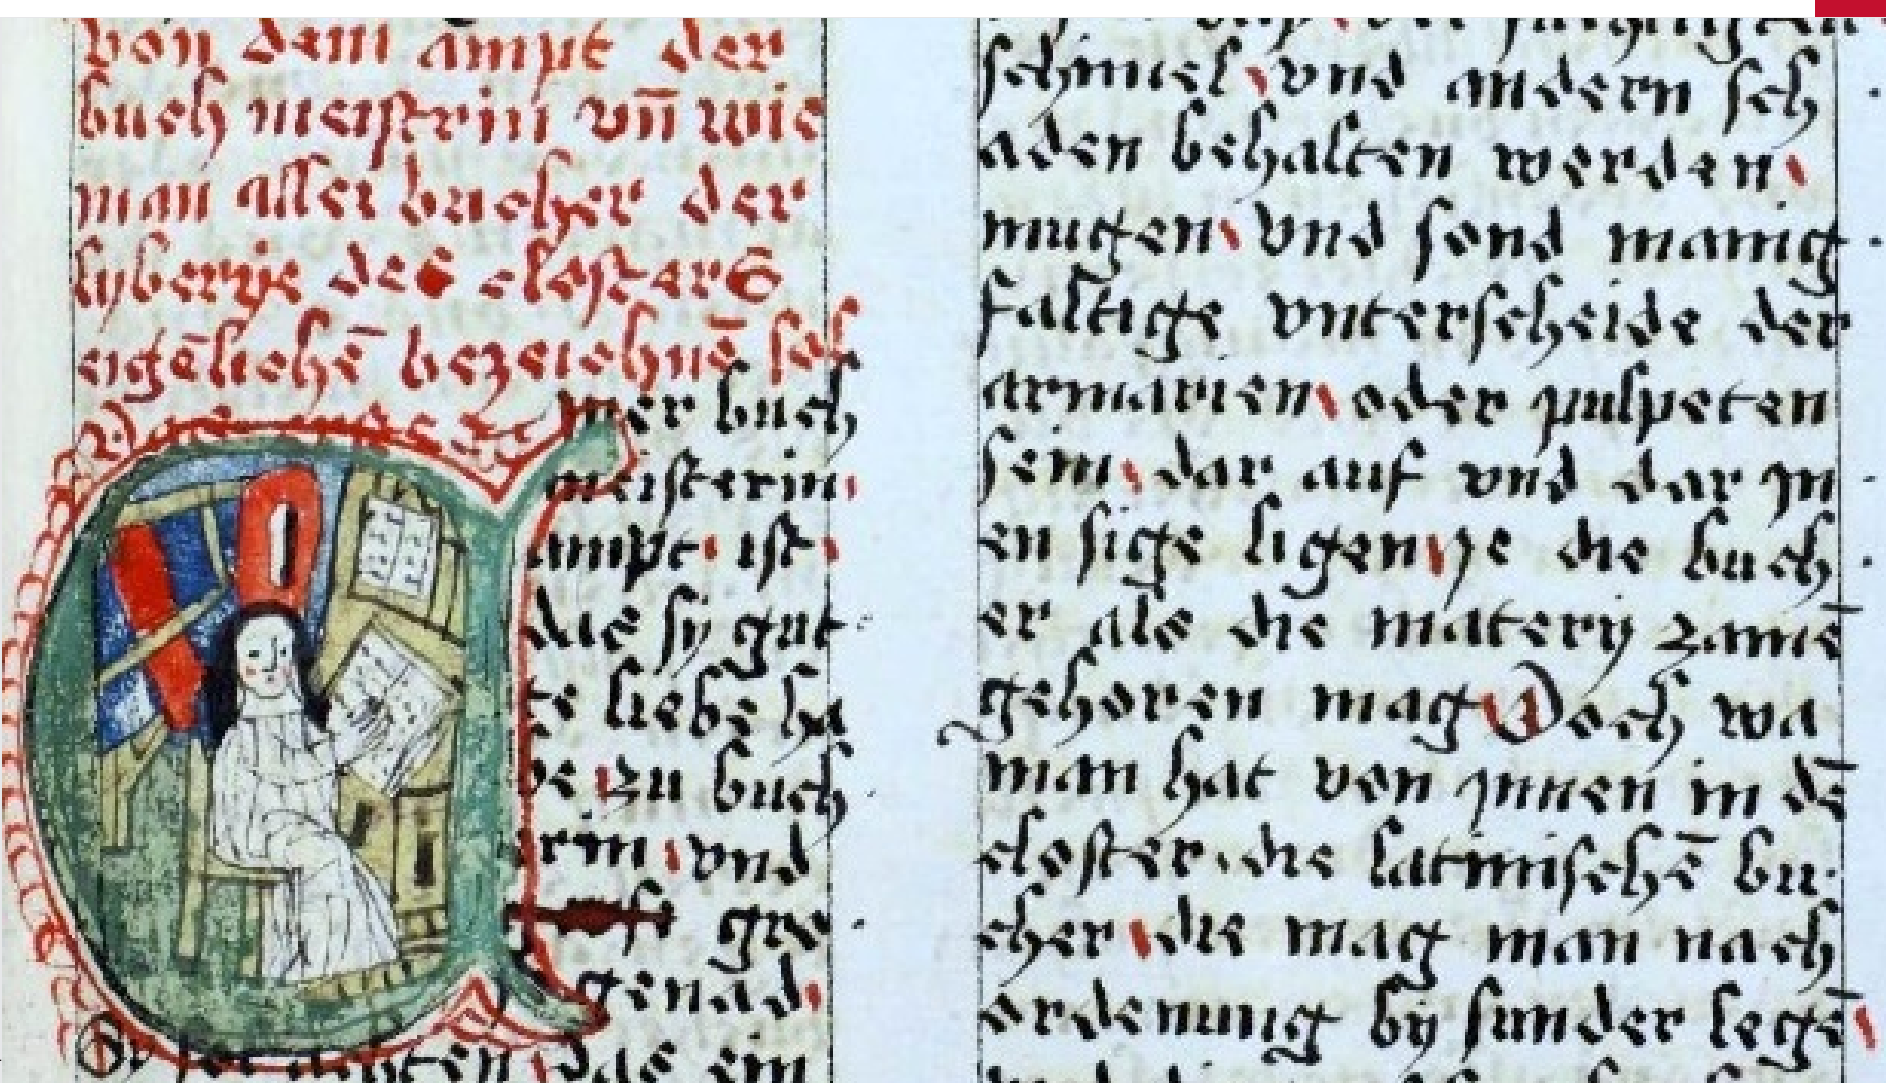 von dem ampt der
buch meistrin vn̄ wie
man aller bucher der
lyberye des closters
eigēlichē bezeichnē sol
mer buch
meisterin
ampt ist
das sy gut
te liebe ha
be zu buch
rin vnd
gro
genad
das ein
schimel vnd andern sch
aden behalten werden
mugen vnd sond manig
faltige vnterscheide der
armarien oder pulpeten
sein dar auf vnd dar in
en sige ligen ye die buch
er als die matery zamē
gehoren mag Doch wa
man hat von ynnen in dē
closter die latinischē bu
cher die mag man nach
ordenung by sunder legē